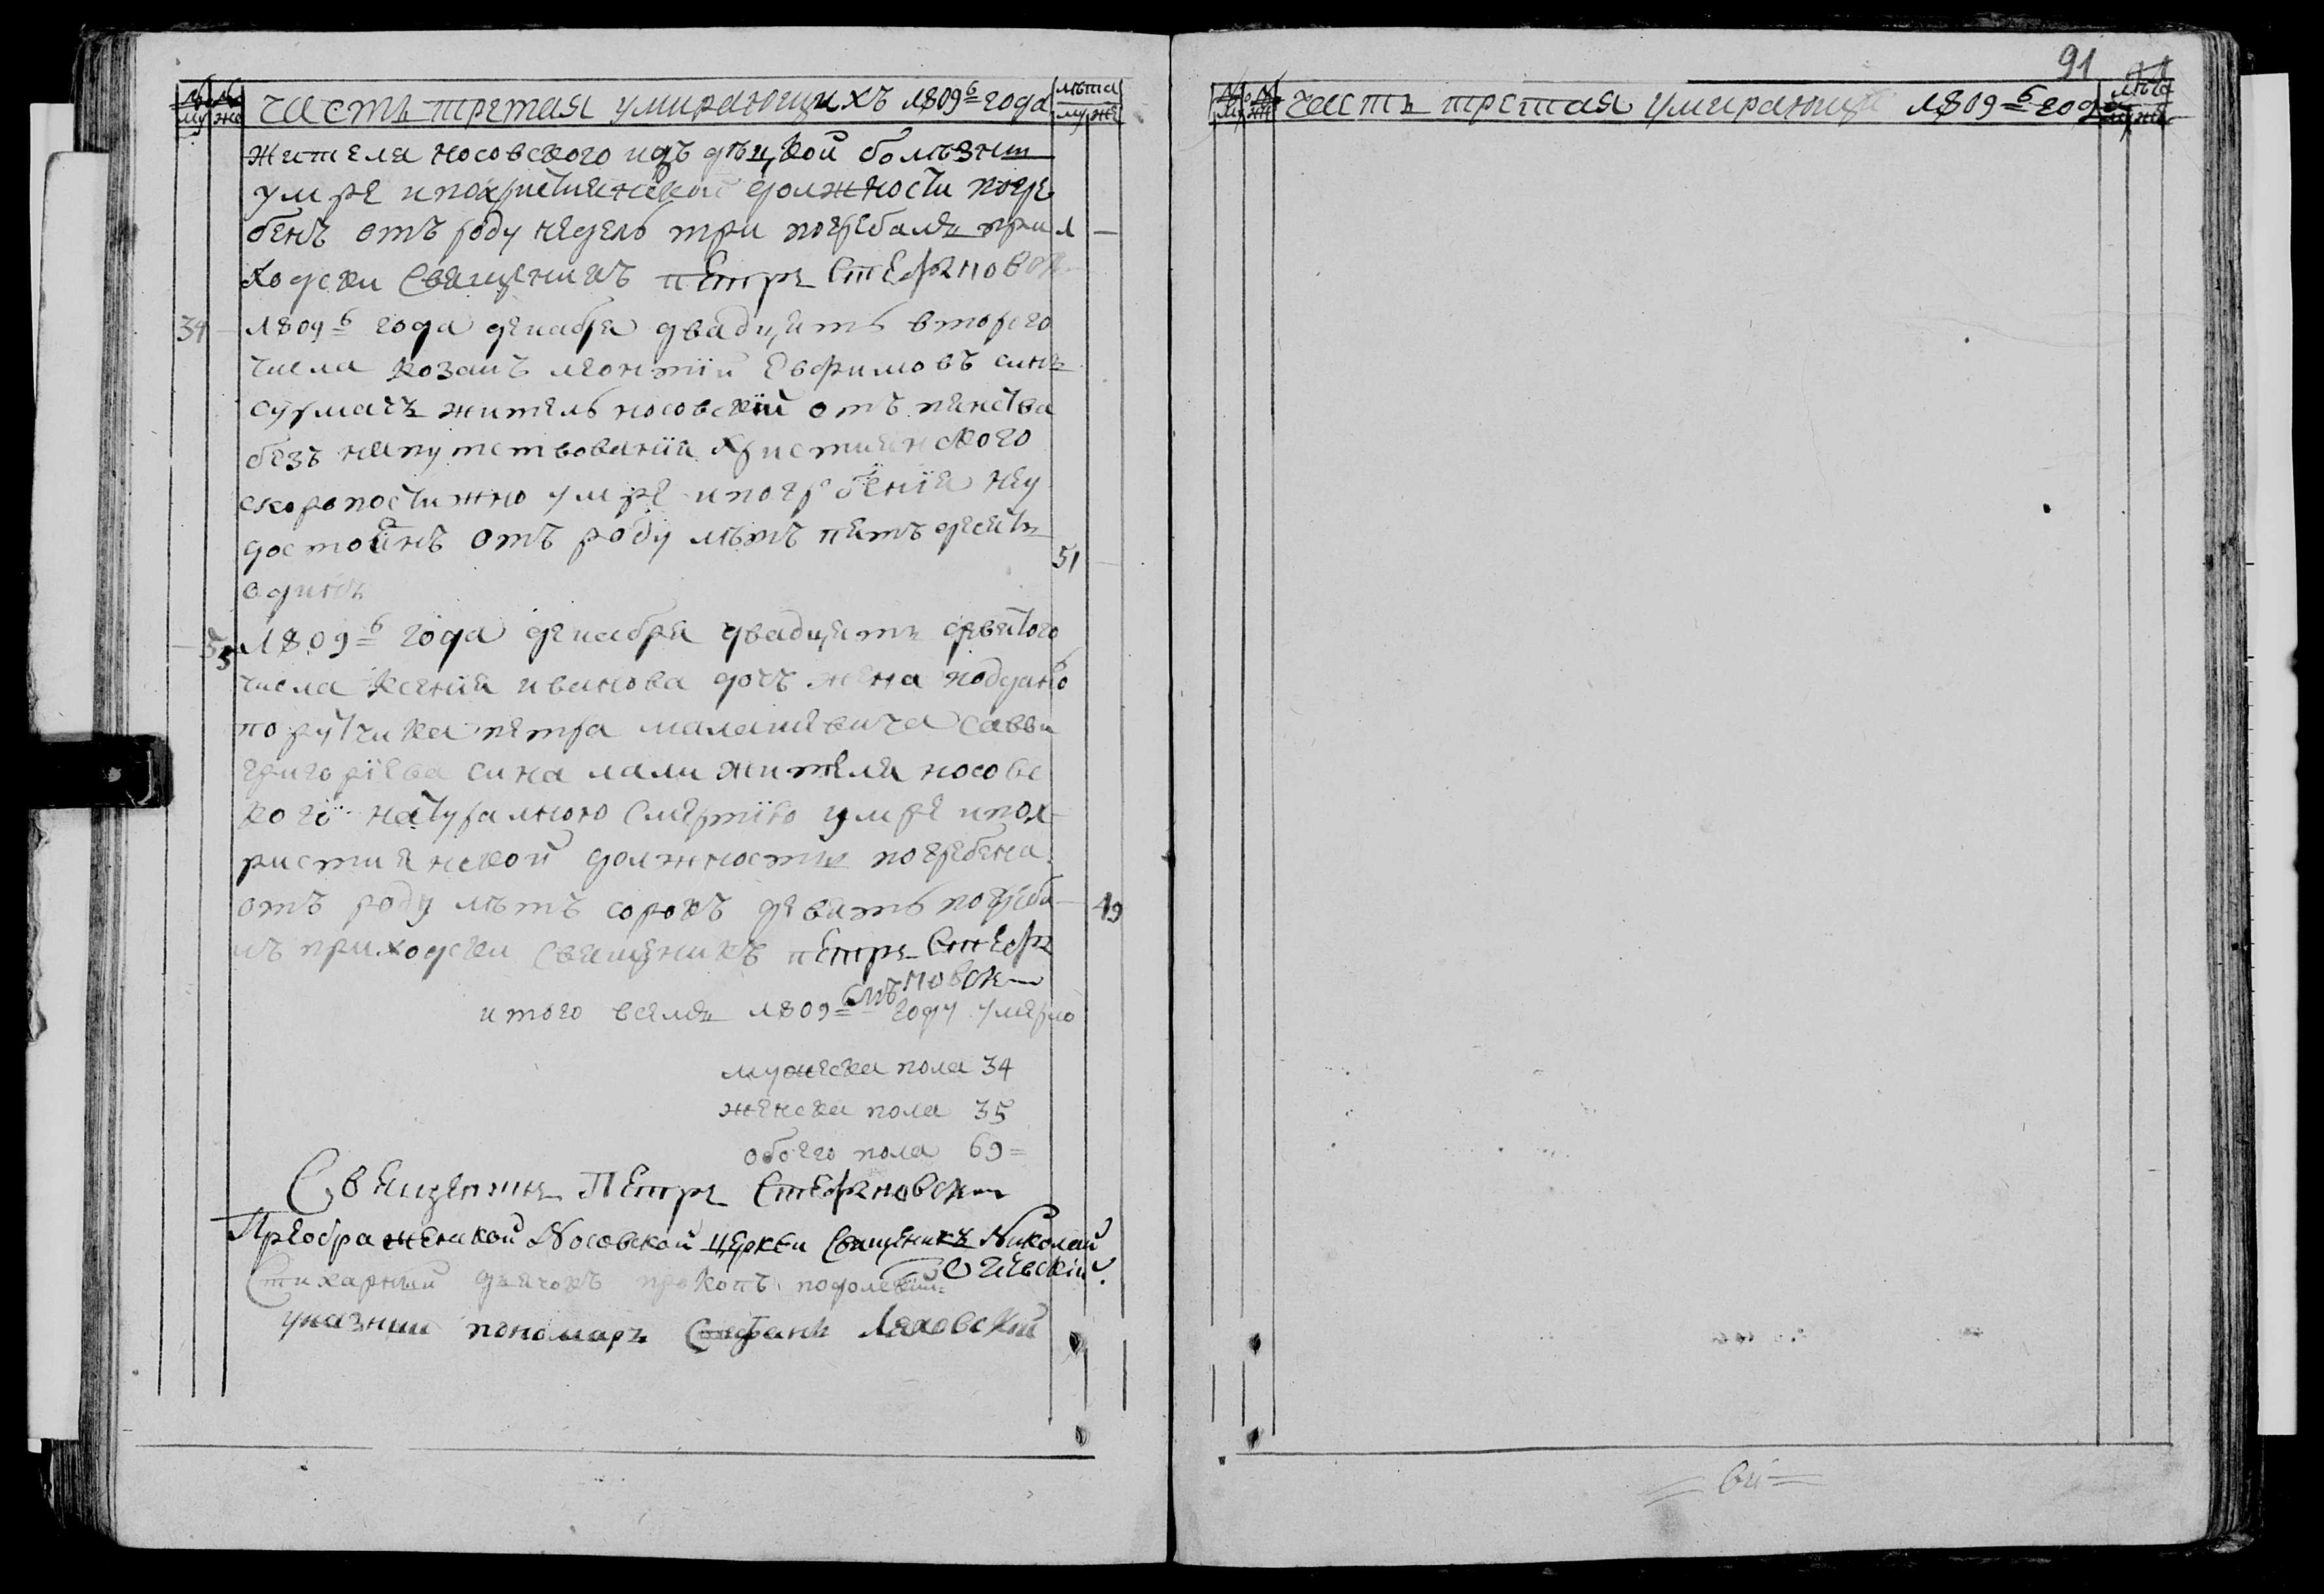 № му № же часть третая умирающихъ 1809г года лѣта му же
жителя носовского изъ дѣцкой болѣзни
умре ипохристиянской должности погре
бенъ отъ роду недель три погребалъ при 1
ходски Священикъ Петръ Стефановск
34 1809г года декабря двадцять второго
числа козакъ леонтій Евфимовъ синъ
житель носовскїй отъ пянства
безъ напутствованїя християнского
скоропостижно умре ипогребенїя неу
достоенъ отъ роду лѣтъ пятъдесятъ 51
одинъ
35 1809г года декабря двадцять девятого
числа Ксенія иванова дочъ жена
порутчика петра малашевича саввы
григорїева сина жителя носовс
кого натуралною смертїю умре ипох
ристиянской должности погребена
отъ роду лѣтъ сорокъ девять погреба 49
лъ приходски Священикъ Петръ Стефа
новск
итого всехъ 1809 году умерло
мужеска пола 34
женска пола 35
обоего пола 69=
Священикъ Петръ Стефановск
Преображенской Носовской церкви Священикъ Николай
Стихарний дьячокъ прокопъ подолскїй
указний пономаръ Стефанъ Ляховский
91
№ му № же часть третая умирающи 1809г года лѣта му же